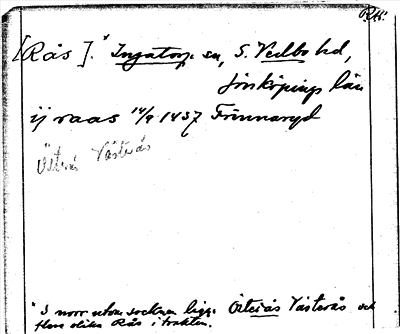 RAp.
[Rås].* Ingatorp sn, S. Vedbo hd,
Jönköpings län
ij raas 14/9 1437 Frinnaryd
Österås Västerås
* I norr utom socknen ligga Österås Västerås och
flera olika Rås i trakten.